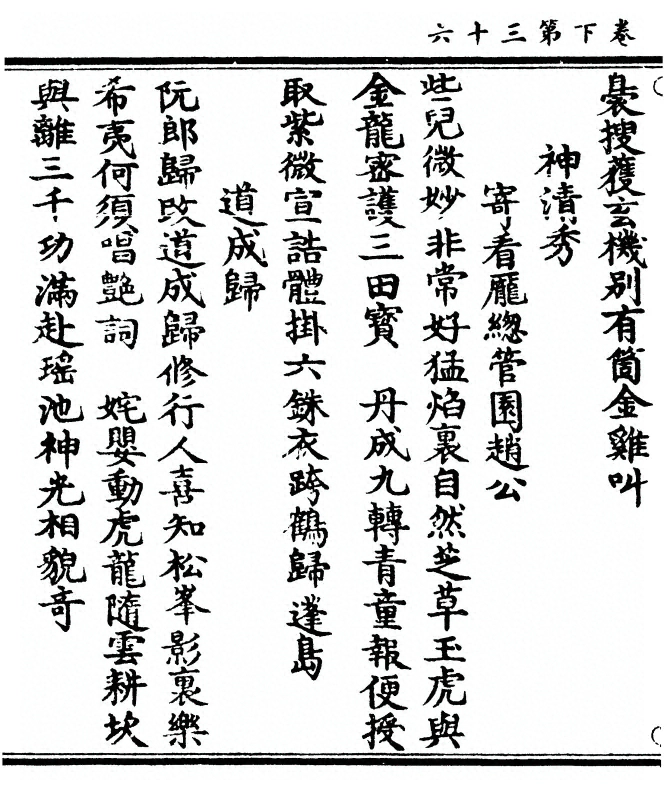 卷下第三十六
裊搜獲玄機別有箇金雞叫
神清秀
寄看龐緫管園趙公
些兒微妙非常好猛焰裏自然芝草玉虎與
金龍密護三田寳　丹成九轉青童報便授
取紫微宣誥體掛六銖衣跨鶴歸蓬島
道成歸
阮郎歸改道成歸修行人喜知松峯影裏樂
希夷何須唱艶詞　姹嬰動虎龍隨雲耕坎
與離三千功滿赴瑶池神光相貌奇